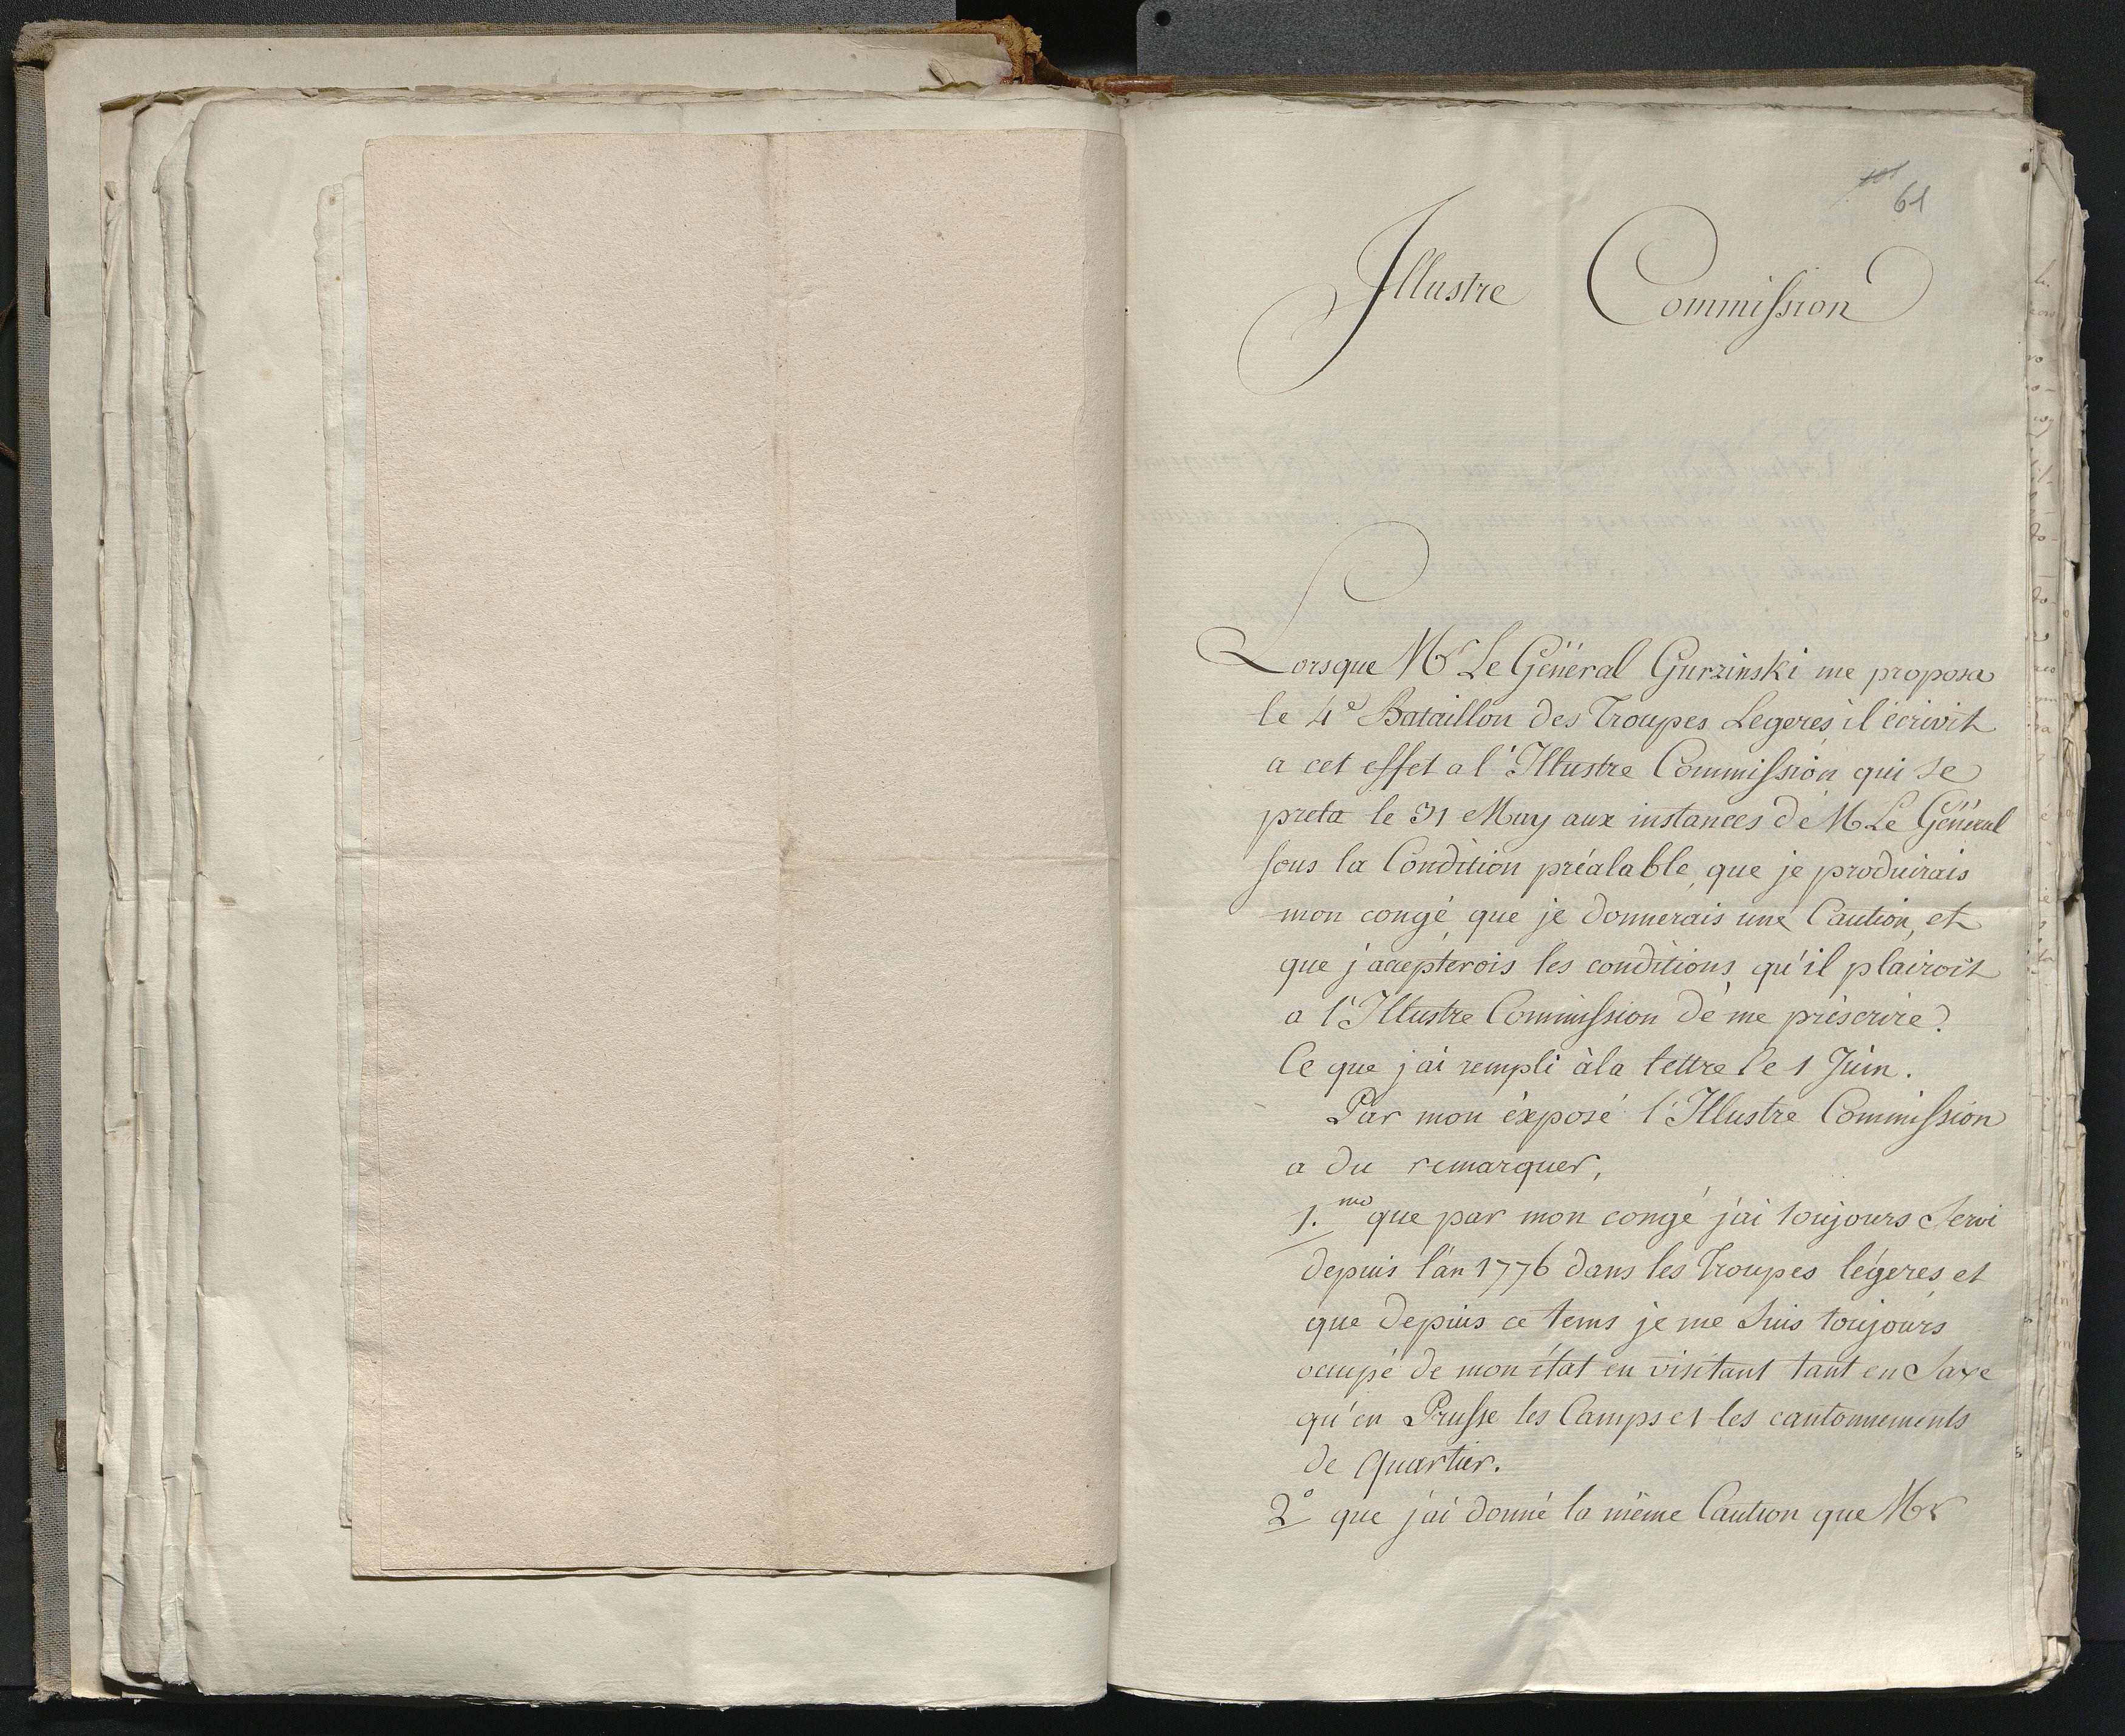 101 61
Illustre Commission
Lorsque Mr Le Général Gurzinski me proposa
le 4e Bataillon des Troupes Legeres il écrivit
a cet effet a l'Illustre Commission qui se
preta le 31 May aux instances de M Le Général
sous la Condition préalable, que je produirais
mon congé, que je donnerais une Caution, et
que j'accepterois les conditions, qu'il plairoit
a l'Illustre Commission de me préscrire?
Ce que j'ai rempli à la lettre le 1 Juin.
Par mon éxposé l'Illustre Commission
a du remarquer,
1.mo que par mon congé j'ai toujours Servi
depuis l'an 1776 dans les Troupes légeres, et
que depuis ce tems je me suis toujours
occupé de mon état en visitant tant en Saxe
qu'en Prusse les Camps et les cantonnements
de Quartier.
2o que j'ai donné la même Caution que Mr